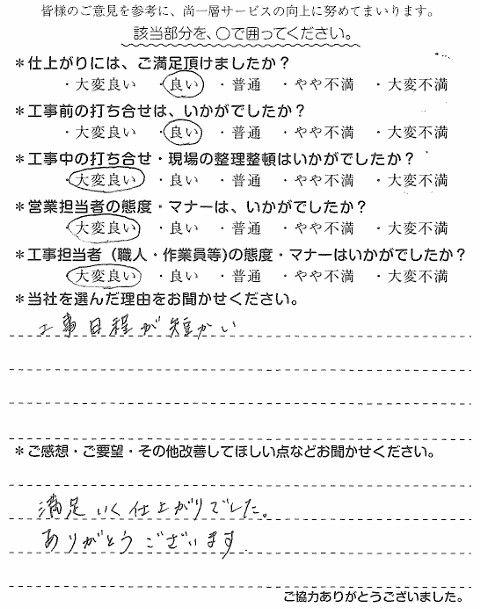 皆様のご意見を参考に、尚一層サービスの向上に努めてまいります。
該当部分を、○で囲ってください。
＊仕上がりには、ご満足頂けましたか？
・大変良い ・良い ・普通 ・やや不満 ・大変不満
＊工事前の打ち合せは、いかがでしたか？
・大変良い ・良い ・普通 ・やや不満 ・大変不満
＊工事中の打ち合せ・現場の整理整頓はいかがでしたか？
・大変良い ・良い ・普通 ・やや不満 ・大変不満
＊営業担当者の態度・マナーは、いかがでしたか？
・大変良い ・良い ・普通 ・やや不満 ・大変不満
＊工事担当者（職人・作業員等)の態度・マナーはいかがでしたか？
・大変良い ・良い ・普通 ・やや不満 ・大変不満
＊当社を選んだ理由をお聞かせください。
工事日程が短かい
＊ご感想・ご要望・その他改善してほしい点などお聞かせください。
満足いく仕上がりでした。
ありがとうございます.
ご協力ありがとうございました。